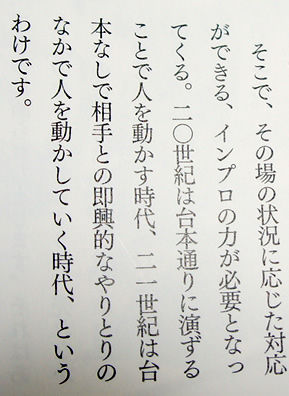 そこで、その場の状況に応じた対応
ができる、インプロの力が必要となっ
てくる。二〇世紀は台本通りに演ずる
ことで人を動かす時代、二一世紀は台
本なしで相手との即興的なやりとりの
なかで人を動かしていく時代、という
わけです。